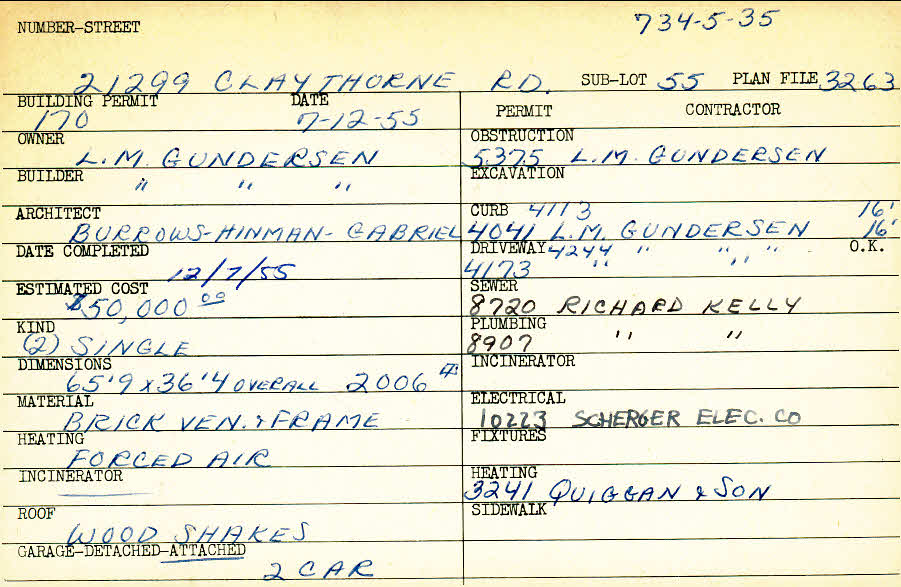 NUMBER-STREET 734-5-35
21299 CLAYTHORNE RD. SUB-LOT 55 PLAN FILE 3263
BUILDING PERMIT DATE
170 7-12-55
OWNER
L.M. GUNDERSEN
BUILDER
" " "
ARCHITECT
BURROWS-HINMAN-GABRIEL
DATE COMPLETED
12/7/55
ESTIMATED COST
$50,000 00
KIND
(2) SINGLE
DIMENSIONS
65'9 x 36'4 OVERALL 2006
MATERIAL
BRICK VEN. & FRAME
HEATING
FORCED AIR
INCINERATOR
ROOF
WOOD SHAKES
GARAGE-DETACHED-ATTACHED
2 CAR
PERMIT CONTRACTOR
OBSTRUCTION
5375 L.M. GUNDERSEN
EXCAVATION
CURB 4113 16'
4041 L.M. GUNDERSEN 16'
DRIVEWAY 4244 " " " O.K.
4173 " " "
SEWER
8720 RICHARD KELLY
PLUMBING
8907 " "
INCINERATOR
ELECTRICAL
10223 SCHERGER ELEC. CO
FIXTURES
HEATING
3241 QUIGGAN & SON
SIDEWALK